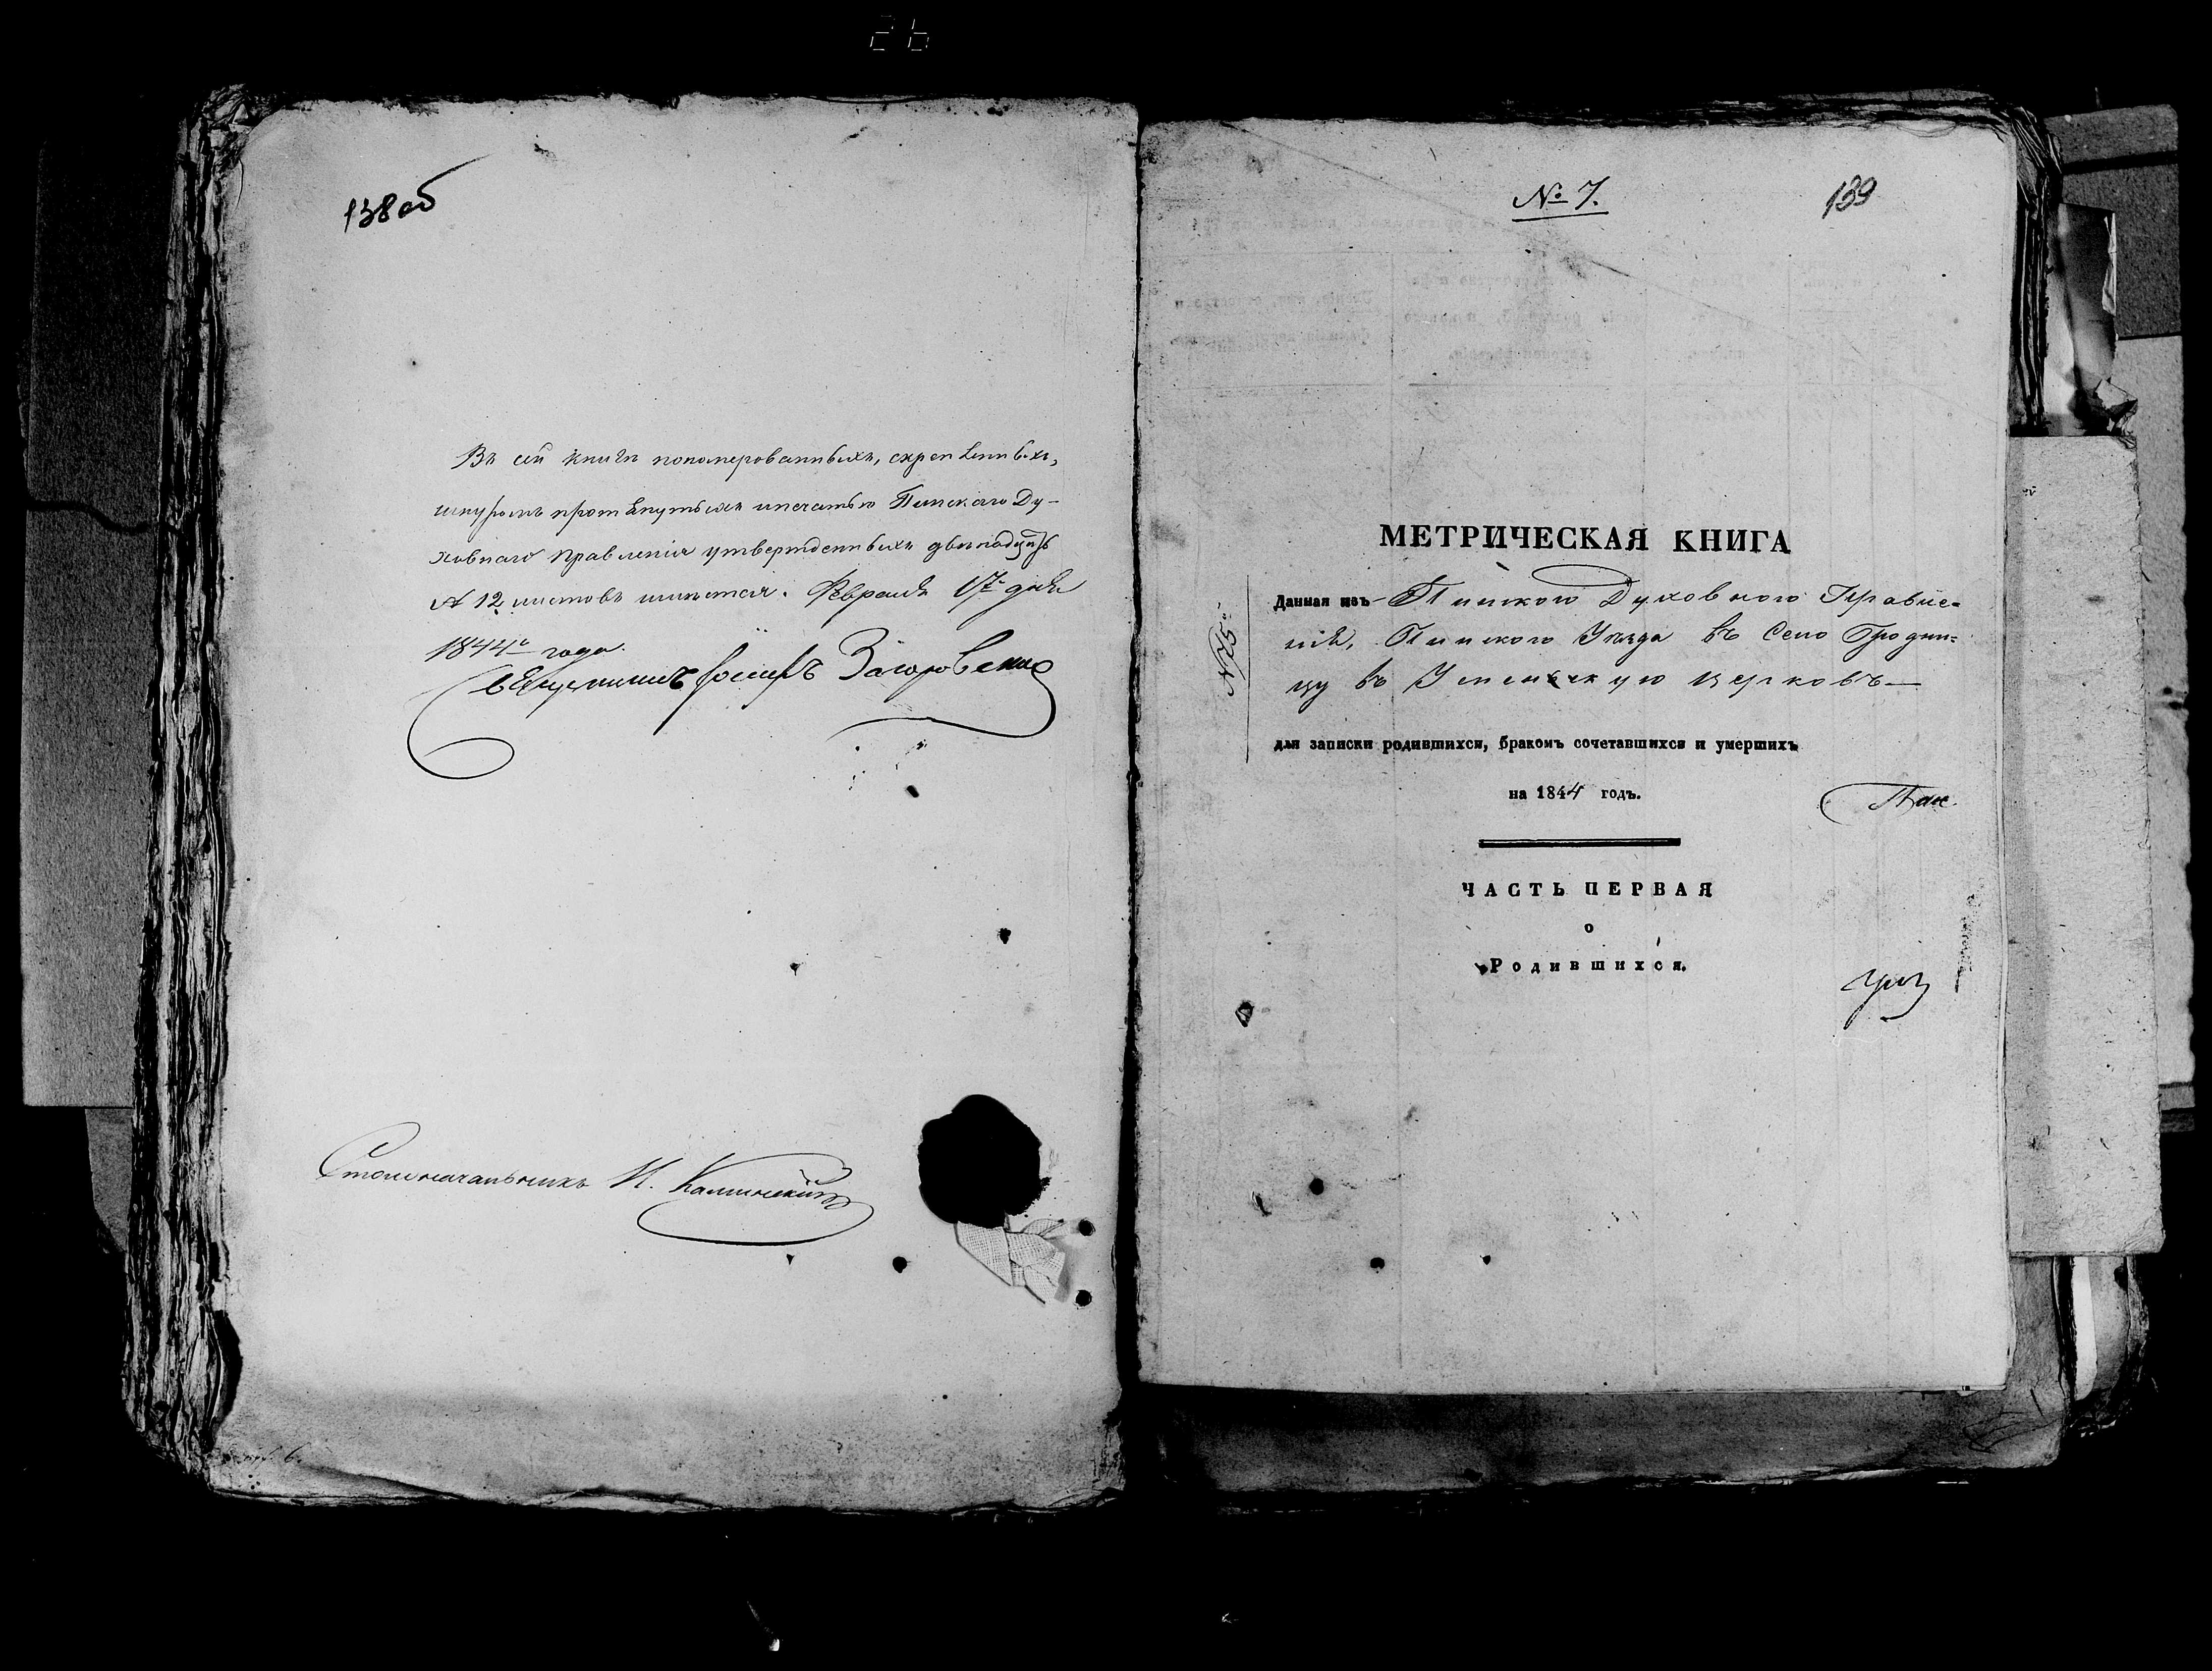 138 об
Въ сей книгѣ пономерованныхъ, скрепленныхъ,
шнуромъ протянутыхъ и печатью Пинскаго Ду-
ховнаго Правленія утвержденныхъ двенадцать
№ 12 листовъ имѣется. Февраля 17 дня
1844го года.
Іосифъ Загоровскій
Столоначальникъ И. Калинскій
№ 7.
139
МЕТРИЧЕСКАЯ КНИГА
Данная изъ Пинского Духовного Правле=
нія, Пинского Уѣзда въ Село Гродни=
цу въ Успенскую церковь
№ 75
для записки родившихся, бракомъ сочетавшихся и умершихъ
на 1844 годъ.
ЧАСТЬ ПЕРВАЯ
о
Родившихся.